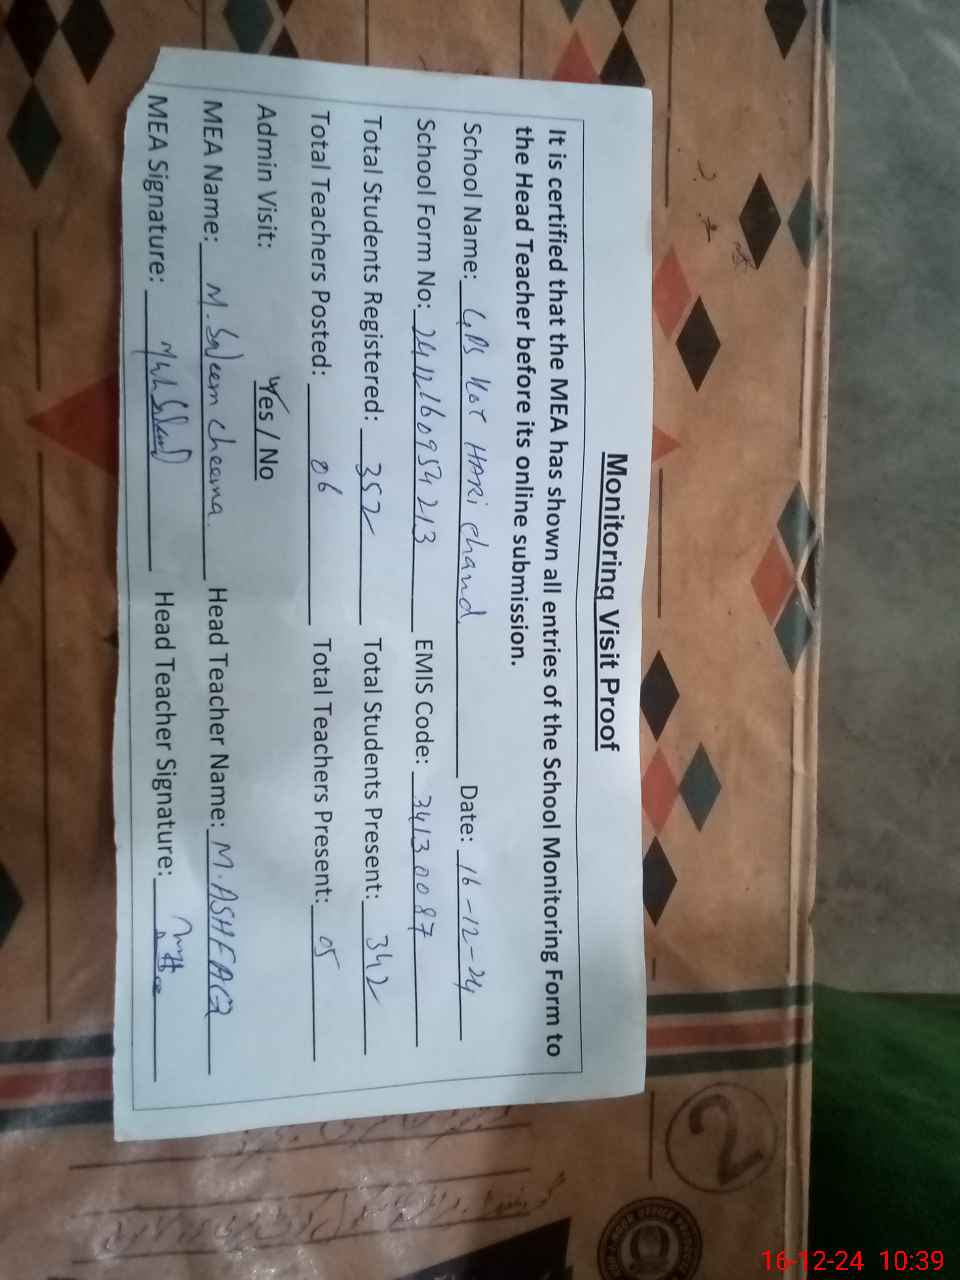 Monitoring Visit Proof
It is certified that the MEA has shown all entries of the School Monitoring Form to
the Head Teacher before its online submission.
School Name: GPS Kot HARi chand Date: 16-12-24
School Form No: 2412160954213 EMIS Code: 34130087
Total Students Registered: 352 Total Students Present: 342
Total Teachers Posted: 06 Total Teachers Present: 05
Admin Visit: Yes / No
MEA Name: M. Saleem cheema. Head Teacher Name: M. ASHFAQ
MEA Signature: Head Teacher Signature:
2
16-12-24 10:39